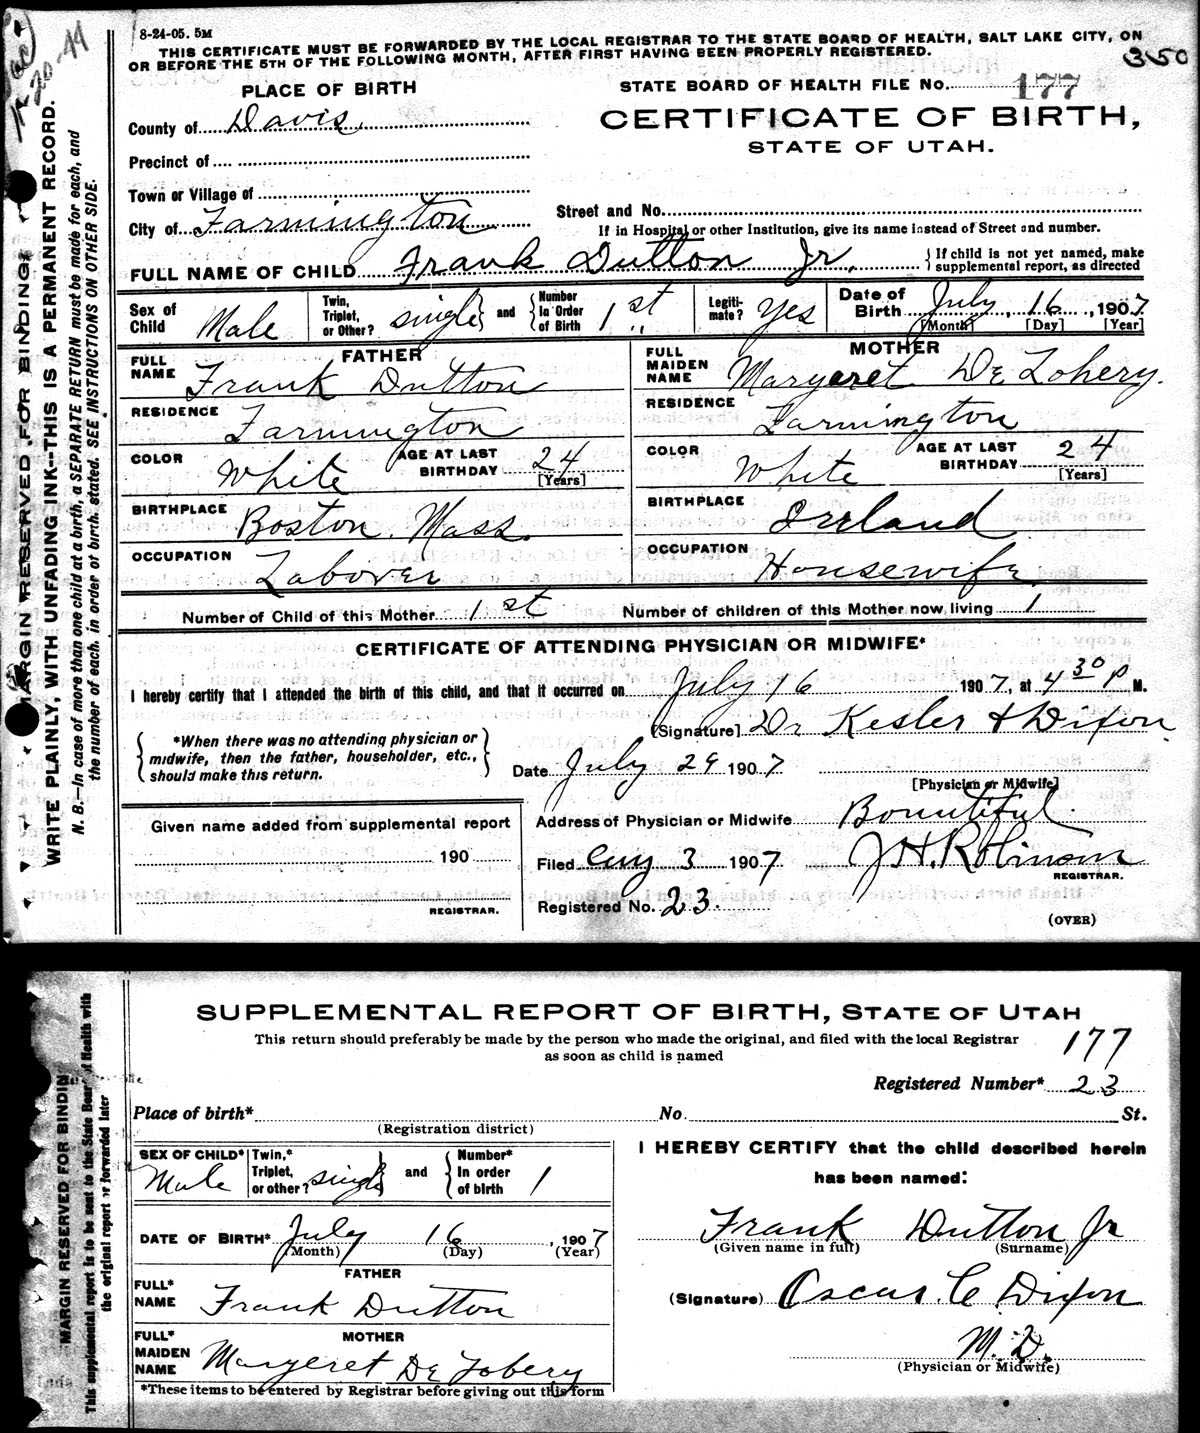 8-24-05. 5M
20-44
THIS CERTIFICATE MUST BE FORWARDED BY THE LOCAL REGISTRAR TO THE STATE BOARD OF HEALTH, SALT LAKE CITY, ON
OR BEFORE THE 5TH OF THE FOLLOWING MONTH, AFTER FIRST HAVING BEEN PROPERLY REGISTERED.
350
PLACE OF BIRTH
STATE BOARD OF HEALTH FILE No. 177
County of Davis
CERTIFICATE OF BIRTH,
STATE OF UTAH.
Precinct of
Town or Village of
City of Farmington
Street and No.
If in Hospital or other Institution, give its name instead of Street and number.
FULL NAME OF CHILD Frank Dutton Jr.
If child is not yet named, make
supplemental report, as directed
Sex of Child Male
Twin, Triplet, or Other? single and Number In Order of Birth 1st
Legiti-mate? Yes
Date of Birth July 16, 1907
[Month] [Day] [Year]
FATHER
FULL NAME Frank Dutton
RESIDENCE Farmington
COLOR White AGE AT LAST BIRTHDAY 24
[Years]
BIRTHPLACE Boston. Mass.
OCCUPATION Laborer
MOTHER
FULL MAIDEN NAME Margeret De Lohery.
RESIDENCE Farmington
COLOR White AGE AT LAST BIRTHDAY 24
[Years]
BIRTHPLACE Ireland
OCCUPATION Housewife
Number of Child of this Mother 1st Number of children of this Mother now living 1
CERTIFICATE OF ATTENDING PHYSICIAN OR MIDWIFE*
I hereby certify that I attended the birth of this child, and that it occurred on July 16 1907, at 4 30 P M.
*When there was no attending physician or
midwife, then the father, householder, etc.,
should make this return.
[Signature] Dr Kesler & Dixon
Date July 29 1907
[Physician or Midwife]
Given name added from supplemental report
190
REGISTRAR.
Address of Physician or Midwife Bountiful
Filed Aug 3 1907 J H. Robinson
REGISTRAR.
Registered No. 23.
(OVER)
MARGIN RESERVED FOR BINDING
WRITE PLAINLY, WITH UNFADING INK--THIS IS A PERMANENT RECORD.
N. B.--In case of more than one child at a birth, a SEPARATE RETURN must be made for each, and
the number of each. in order of birth. stated. SEE INSTRUCTIONS ON OTHER SIDE.
SUPPLEMENTAL REPORT OF BIRTH, STATE OF UTAH
This return should preferably be made by the person who made the original, and filed with the local Registrar
as soon as child is named
177
Registered Number* 23
Place of birth* No. St.
(Registration district)
SEX OF CHILD* Male
Twin,* Triplet, or other? single and Number* In order of birth 1
DATE OF BIRTH* July 16, 1907
(Month) (Day) (Year)
FATHER
FULL* NAME Frank Dutton
MOTHER
FULL* MAIDEN NAME Margeret De Lohery
*These items to be entered by Registrar before giving out this form
I HEREBY CERTIFY that the child described herein
has been named:
Frank Dutton Jr
(Given name in full) (Surname)
(Signature) Oscar C. Dixon
M. D.
(Physician or Midwife)
MARGIN RESERVED FOR BINDIN
This supplemental report is to be sent to the State Board of Health with
the original report or forwarded later